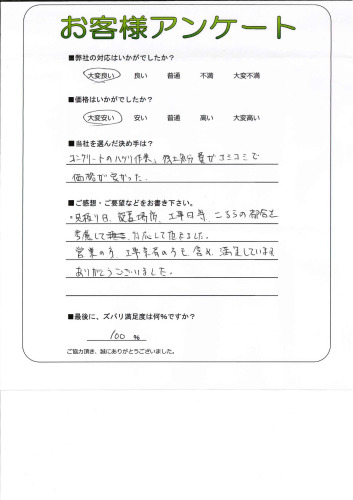 お客様アンケート
■弊社の対応はいかがでしたか？
大変良い 良い 普通 不満 大変不満
■価格はいかがでしたか？
大変安い 安い 普通 高い 大変高い
■当社を選んだ決め手は？
コンクリートのハツリ作業、残土処分費がコミコミで
価格が良かった。
■ご感想・ご要望などをお書き下さい。
・見積り日、設置場所、工事日等、こちらの都合を
考慮して 対応して頂きました。
営業の方、工事業者の方も含め、満足しています
ありがとうございました。
■最後に、ズバリ満足度は何％ですか？
100 %
ご協力頂き、誠にありがとうございました。